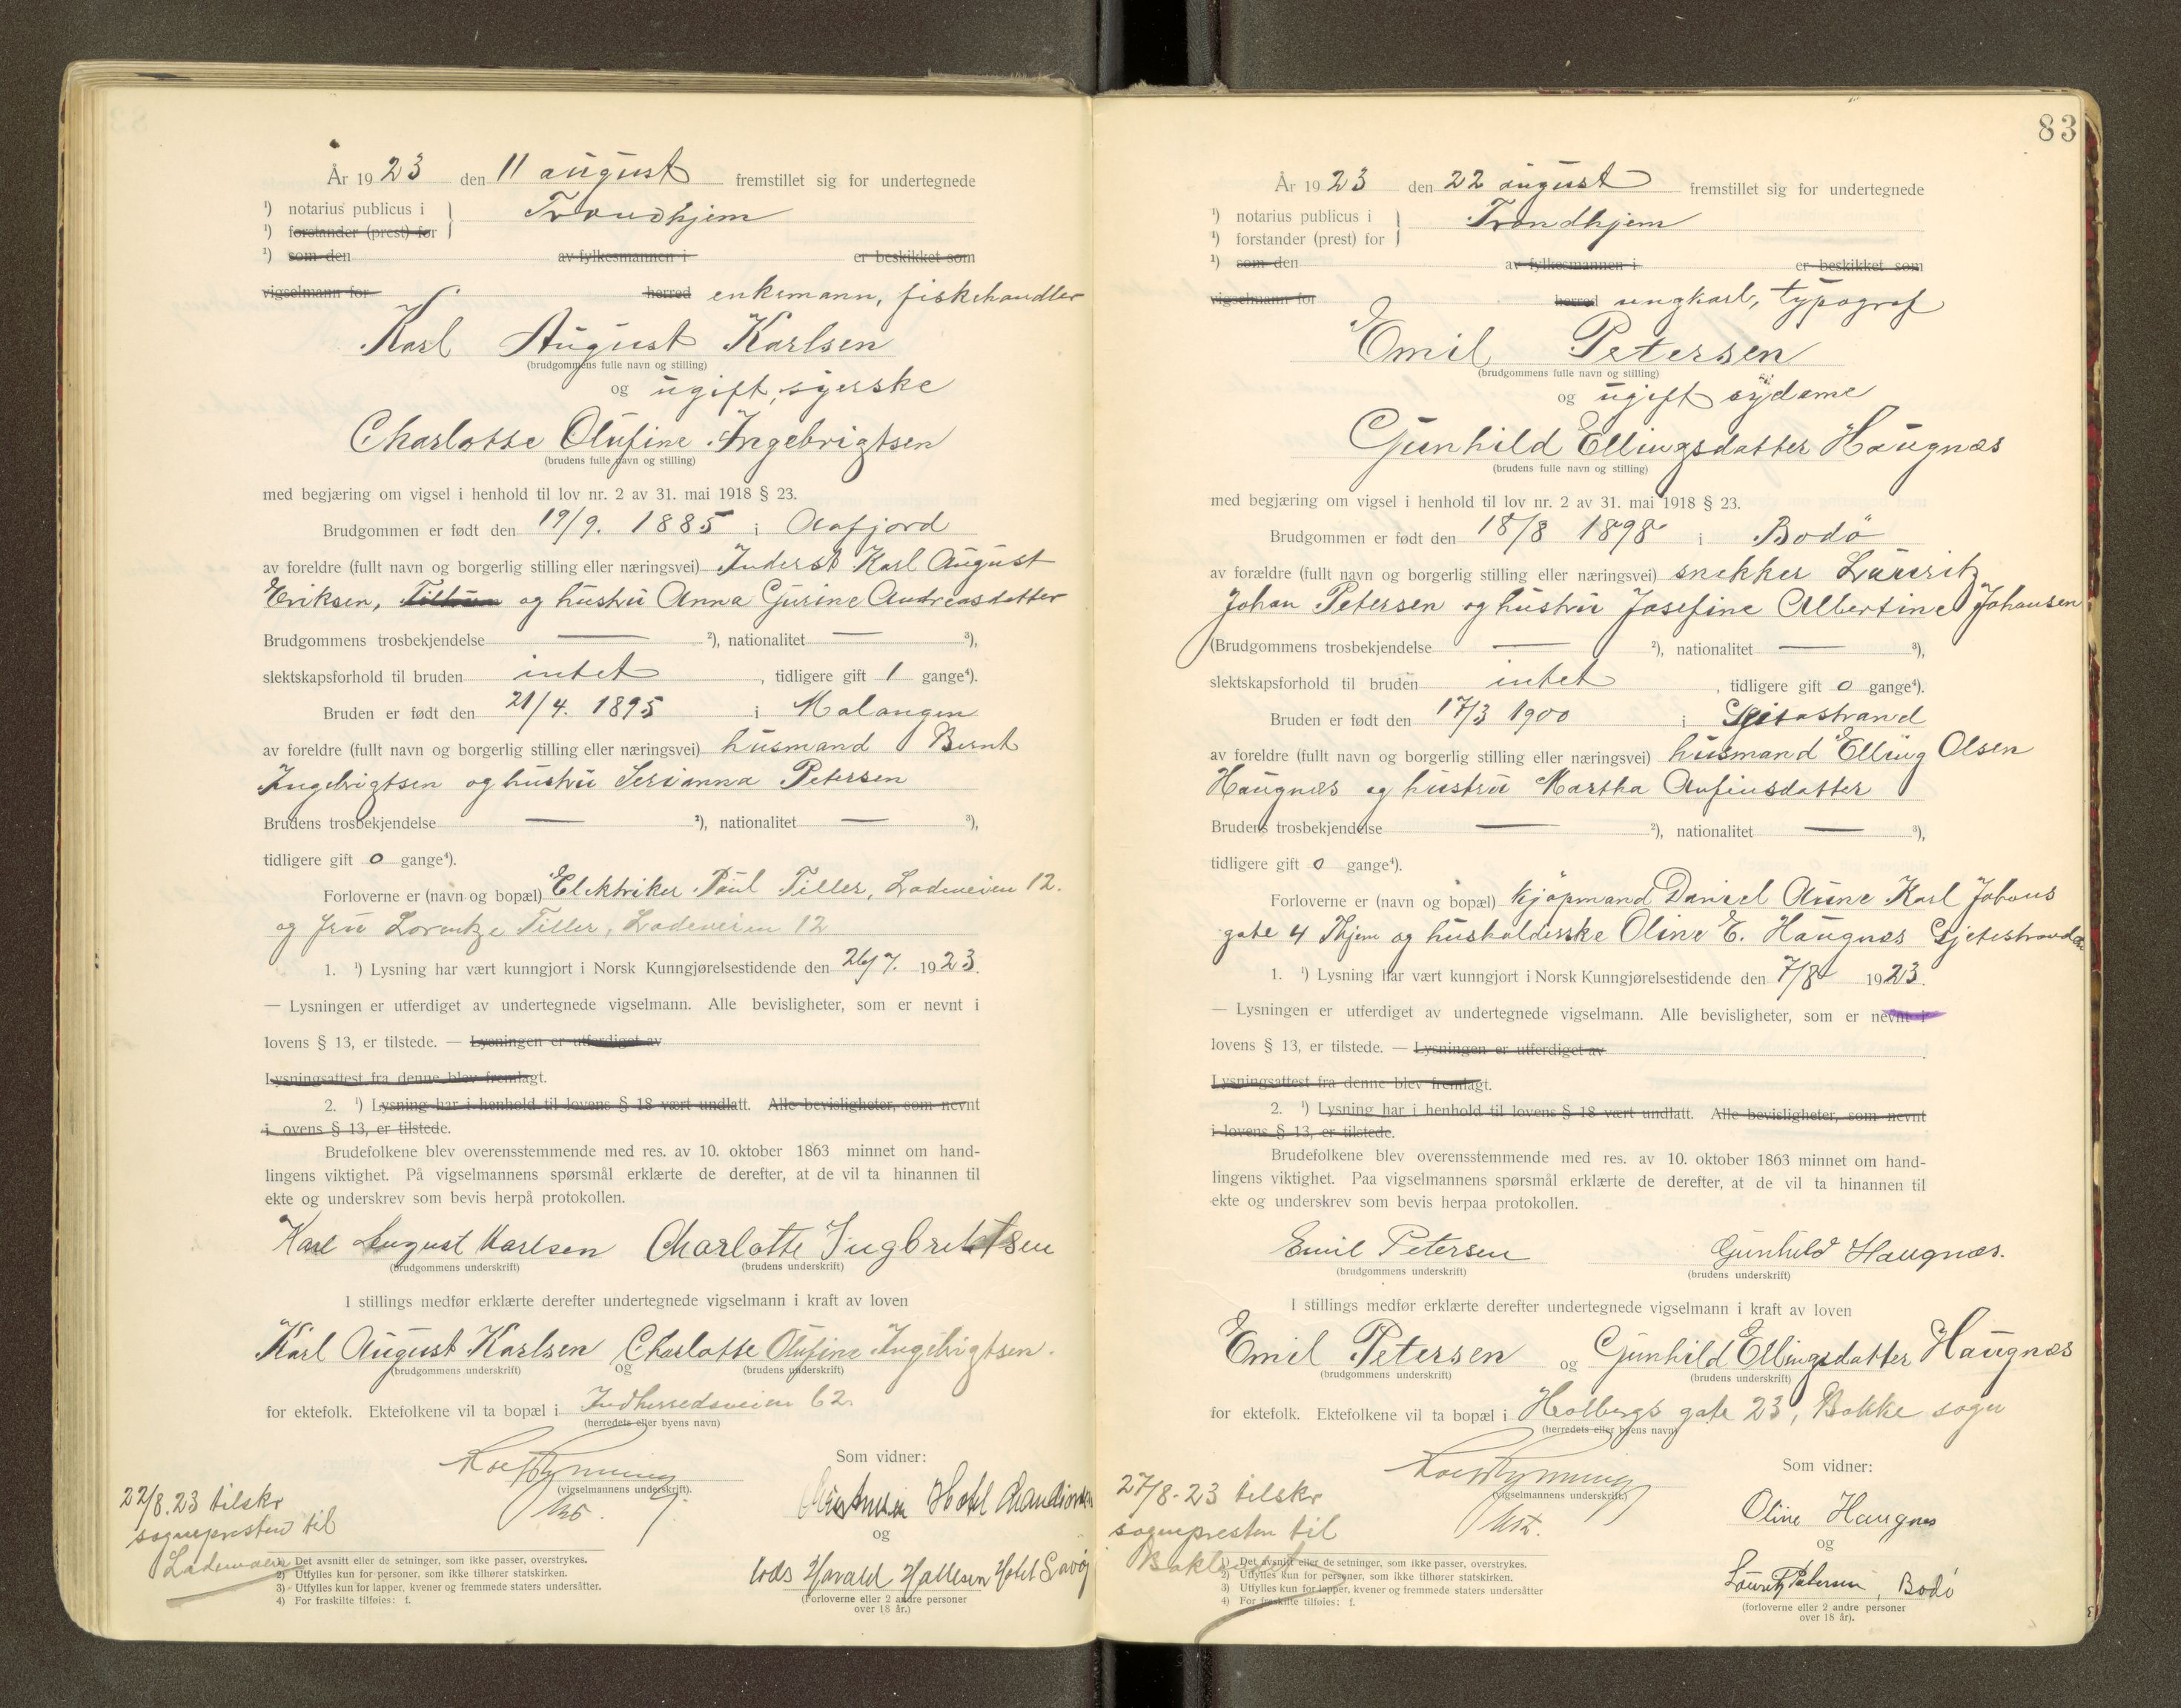 År 1923 den 11 august fremstillet sig for undertegnede
¹) notarius publicus i } Trondhjem
¹) forstander (prest) for
¹) som den av fylkesmannen i er beskikket som
vigselmann for herred enkemann, fiskehandler
Karl August Karlsen
(brudgommens fulle navn og stilling)
og ugift, syerske
Charlotte Olufine Ingebrigtsen
(brudens fulle navn og stilling)
med begjæring om vigsel i henhold til lov nr. 2 av 31. mai 1918 § 23.
Brudgommen er født den 19/9. 1885 i Aafjord
av foreldre (fullt navn og borgerlig stilling eller næringsvei) Inderst Karl August
Eriksen, og hustru Anna Gurine Andreasdatter
Brudgommens trosbekjendelse — ²), nationalitet — ³),
slektskapsforhold til bruden intet , tidligere gift 1 gange⁴).
Bruden er født den 21/4. 1895 i Malangen
av foreldre (fullt navn og borgerlig stilling eller næringsvei) husmand Bernt
Ingebrigtsen og hustru Serianna Petersen
Brudens trosbekjendelse — ²), nationalitet — ³),
tidligere gift 0 gange⁴).
Forloverne er (navn og bopæl) Elektriker Paul Tiller, Ladeveien 12.
og fru Lorentze Tiller, Ladeveien 12
1. ¹) Lysning har vært kunngjort i Norsk Kunngjørelsestidende den 26/7. 1923.
— Lysningen er utferdiget av undertegnede vigselmann. Alle bevisligheter, som er nevnt i
lovens § 13, er tilstede. — Lysningen er utferdiget av
Lysningsattest fra denne blev fremlagt.
2. ¹) Lysning har i henhold til lovens § 18 vært undlatt. Alle bevisligheter, som nevnt
i ovens § 13, er tilstede.
Brudefolkene blev overensstemmende med res. av 10. oktober 1863 minnet om hand-
lingens viktighet. På vigselmannens spørsmål erklærte de derefter, at de vil ta hinannen til
ekte og underskrev som bevis herpå protokollen.
Karl August Karlsen Charlotte Ingbrektsen
(brudgommens underskrift) (brudens underskrift)
I stillings medfør erklærte derefter undertegnede vigselmann i kraft av loven
Karl August Karlsen og Charlotte Olufine Ingebrigtsen.
(brudgommens underskrift) (brudens underskrift)
for ektefolk. Ektefolkene vil ta bopæl i Indherredsveien 62.
(herredets eller byens navn)
Som vidner:
(vigselmannens underskrift).
22/8. 23 tilskr
sognepresten til
Lademoen
Hotel
og
lods Harald Hallesen Hotel Savoy
(Forloverne eller 2 andre personer
over 18 år.)
1) Det avsnitt eller de setninger, som ikke passer, overstrykes.
2) Utfylles kun for personer, som ikke tilhører statskirken.
3) Utfylles kun for lapper, kvener og fremmede staters undersåtter.
4) For fraskilte tilføies: f.
83
År 1923 den 22 august fremstillet sig for undertegnede
¹) notarius publicus i } Trondhjem
¹) forstander (prest) for
¹) som den av fylkesmannen i er beskikket som
vigselmann for herred ungkarl, typograf
Emil Petersen
(brudgommens fulle navn og stilling)
og ugift sydame
Gunhild Ellingsdatter Haugnæs
(brudens fulle navn og stilling)
med begjæring om vigsel i henhold til lov nr. 2 av 31. mai 1918 § 23.
Brudgommen er født den 18/8 1898 i Bodö
av forældre (fullt navn og borgerlig stilling eller næringsvei) snekker Lauritz
Johan Petersen og hustru Josefine Albertine Johansen
(Brudgommens trosbekjendelse — ²), nationalitet — ³),
slektskapsforhold til bruden intet , tidligere gift 0 gange⁴).
Bruden er født den 17/3 1900 i
av foreldre (fullt navn og borgerlig stilling eller næringsvei) husmand Elling Olsen
Haugnæs og hustru Martha Anfinsdatter
Brudens trosbekjendelse — ²), nationalitet — ³),
tidligere gift 0 gange⁴).
Forloverne er (navn og bopæl) kjöpmand Daniel Aune Karl Johans
gate 4 Thjem og husholderske Oline E. Haugnæs
1. ¹) Lysning har vært kunngjort i Norsk Kunngjørelsestidende den 7/8 1923.
— Lysningen er utferdiget av undertegnede vigselmann. Alle bevisligheter, som er nevnt i
lovens § 13, er tilstede. — Lysningen er utferdiget av
Lysningsattest fra denne blev fremlagt.
2. ¹) Lysning har i henhold til lovens § 18 vært undlatt. Alle bevisligheter, som nevnt
i lovens § 13, er tilstede.
Brudefolkene blev overensstemmende med res. av 10. oktober 1863 minnet om hand-
lingens viktighet. Paa vigselmannens spørsmål erklærte de derefter, at de vil ta hinannen til
ekte og underskrev som bevis herpaa protokollen.
Emil Petersen Gunhild Haugnæs.
(brudgommens underskrift) (brudens underskrift)
I stillings medfør erklærte derefter undertegnede vigselmann i kraft av loven
Emil Petersen og Gunhild Ellingsdatter Haugnæs
(brudgommens underskrift) (brudens underskrift)
for ektefolk. Ektefolkene vil ta bopæl i Holbergs gate 23, Bakke sogn
(herredets eller byens navn)
Som vidner:
(vigselmannens underskrift.)
27/8-23 tilskr
sognepresten til
Bakke
Oline Haugnes
og
Lauritz Petersen, Bodö
(forloverne eller 2 andre personer
over 18 år).
1) Det avsnitt eller de setninger, som ikke passer, overstrykes.
2) Utfylles kun for personer, som ikke tilhører statskirken.
3) Utfylles kun for lapper, kvener og fremmede staters undersåtter
4) For fraskilte tilføies: f.